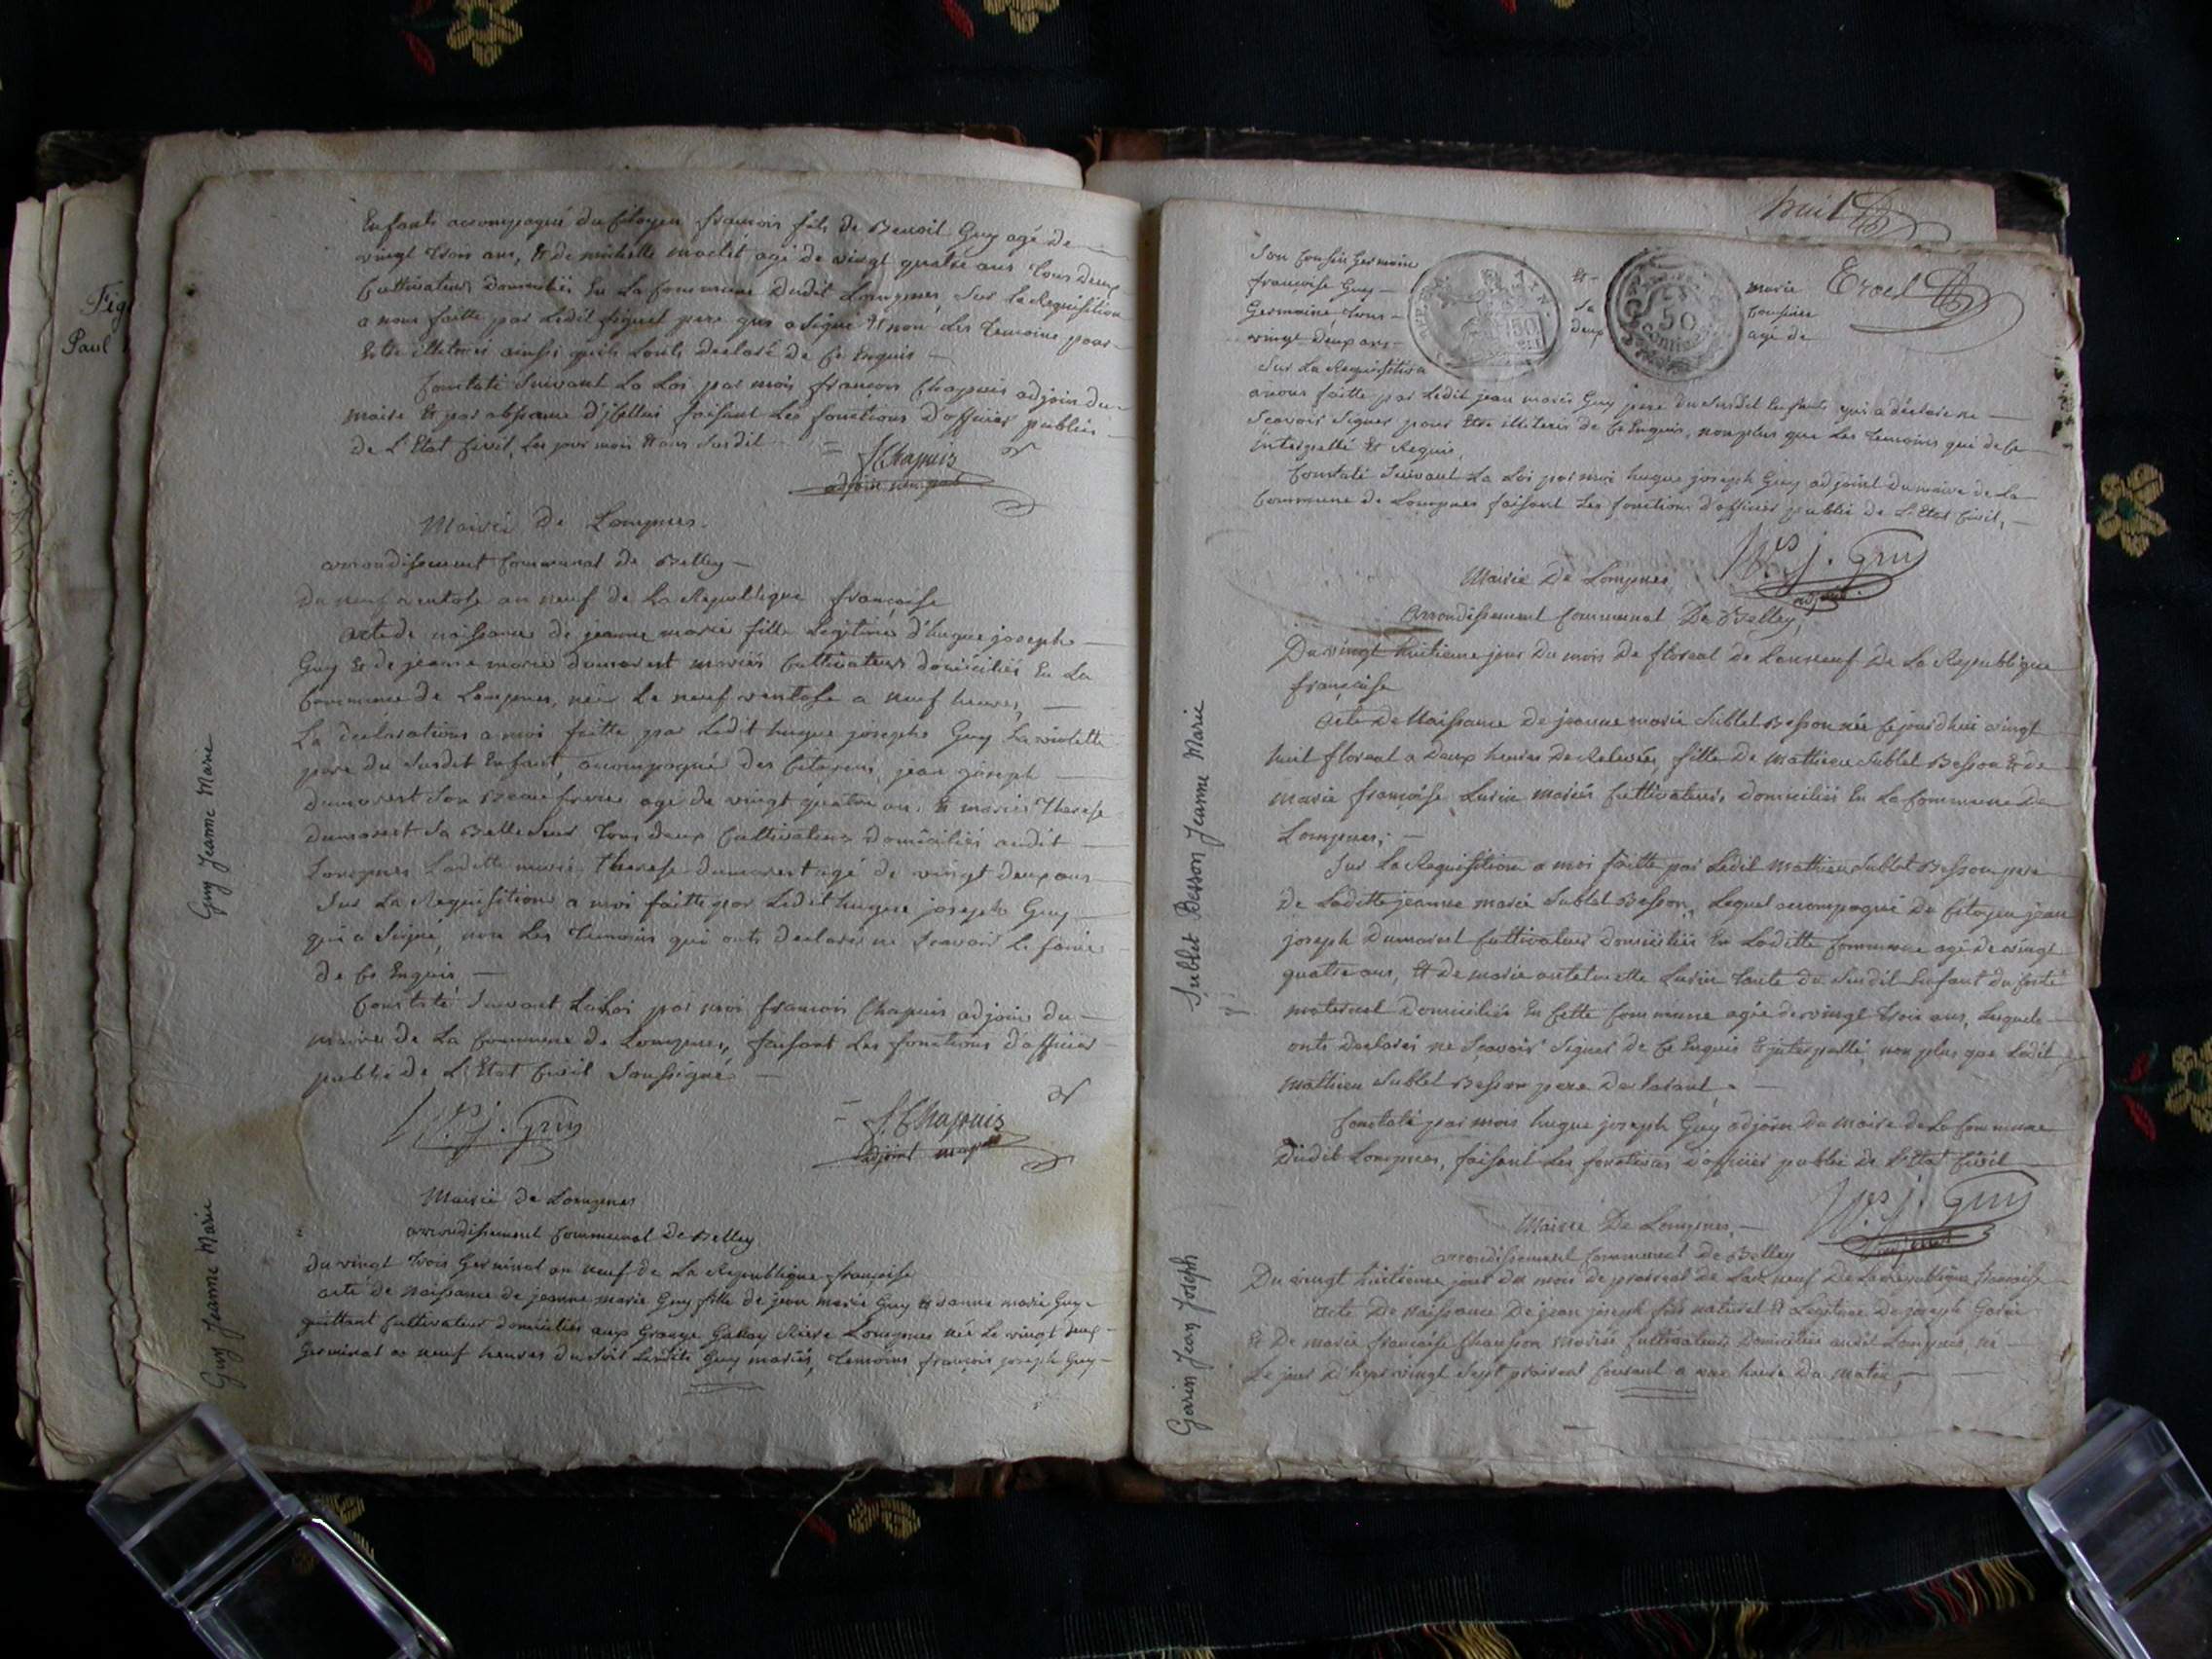 Enfants accompagné du Citoyen françois fils de Benoit Guy agé de
vingt trois ans, et de michelle agé de vingt quatre ans tous deux
Cultivateurs domiciliés En La Commune dudit Lompnes, Sur la Requisition
a nous faitte par Ledit pere qui a Signé et non Les temoins pour
Estre illiterés ainsi quils Lonts declaré de Ce Enquis
Constaté Suivant La Loi par moi françois Chapuis adjoin du
maire Et par absence d'isellui faisant Les fonctions d'officier public
de L'Etat Civil, Les jour mois et ans Susdit
= f. Chapuis
adjoin
Mairie de Lompnes.
arrondissement Communal de Belley
Du neuf ventose an neuf de La Republique françoise
acte de naissance de jeanne marie fille Legitime d'hugue joseph
Guy Et de jeanne marie dumarest mariés Cultivateurs domiciliés En La
Commune de Lompnes, née Le neuf ventose a neuf heures,
La declaration a moi faitte par Ledit hugue joseph Guy La violette
pere du Susdit Enfant, acompagné des Citoyens jean joseph
dumarest Son Beau frere agé de vingt quatre ans Et marie Therese
dumarest Sa Belle Sœur tous deux Cultivateurs domiciliés audit
Lompnes Laditte marie therese dumarest agé de vingt deux ans
Sur La Requisition a moi faitte par Ledit hugue joseph Guy
qui a Signé, non Les temoins qui onts declarés ne Scavoir Le faire
de Ce Enquis
Constaté Suivant La Loi par moi francois Chapuis adjoin du
maire de La Commune de Lompnes, faisant Les fonctions d'officier
public de L'Etat Civil Soussigné
H. j. Guy
= f. Chapuis
adjoint
Guy Jeanne Marie
Mairie de Lompnes
arrondissement Communal de Belley
Du vingt trois Germinal an neuf de La Republique françoise
acte de naissance de jeanne marie Guy fille de jean marie Guy Et danne marie Guy
Cultivateur domiciliés aux Grange Lompnes née Le vingt deux
Germinal a neuf heures du Soir Lesdits Guy mariés, temoins françois joseph Guy
Guy Jeanne Marie
Paul
huit
Son Cousin Germain Et marie
françoise Guy Sa Cousine
Germaine, tous deux agé de
vingt deux ans
Sur La Requisition
anous faitte par Ledit jean marie Guy pere du Susdit Enfants qui a déclaré ne
Scavoir Signer pour Etre illiterés de Ce Enquis, non plus que Les temoins qui de Ce
interpellé Et Requis,
Constaté Suivant La Loi par moi hugue joseph Guy adjoint du maire de La
Commune de Lompnes faisant Les fonctions d'officier public de L'Etat Civil,
50
H.es j. Guy
adjoint
Mairie De Lompnes
Arrondissement Communal De Belley,
Du vingt huitieme jour Du mois De floreal de Lan neuf De La Republique
française
Acte De Naissance De jeanne marie Sublet Besson née Cejourdhui vingt
huit floreal a Deux heures De Relevée, fille De Mathieu Sublet Besson Et de
marie françoise Lusin mariés Cultivateurs Domiciliés En La Commune De
Lompnes;
Sur La Requisition a moi faitte par Ledit Mathieu Sublet Besson pere
De Laditte jeanne marie Sublet Besson, Lequel accompagné Du Citoyen jean
joseph Dumarest Cultivateur Domicilié En Laditte Commune agé De vingt
quatre ans, Et De marie Lusin tante du Susdit Enfant du Costé
maternel Domiciliée En Cette Commune agée de vingt trois ans, Lesquels
onts Declarés ne Scavoir Signer de Ce Enquis Et interpellé, non plus que Ledit
Mathieu Sublet Besson pere Declarant.
Constaté par mois hugue joseph Guy adjoin Du Maire de La Commune
Dudit Lompnes, faisant Les fonctions D'officier public De L'Etat Civil
Sublet Besson Jeanne Marie
H.es j. Guy
adjoint
Mairie De Lompnes,
arrondissement Communal De Belley
Du vingt huitieme jour Du mois De prairial De Lan neuf De La Republique francaise
Acte De Naissance De jean joseph fils naturel Et Legitime De joseph Garin
Et De marie françoise Chanson mariés Cultivateurs Domiciliés audit Lompnes, né
Le jour D'hyer vingt Sept prairial Courant a une heure Du Matin,
Garin Jean Joseph